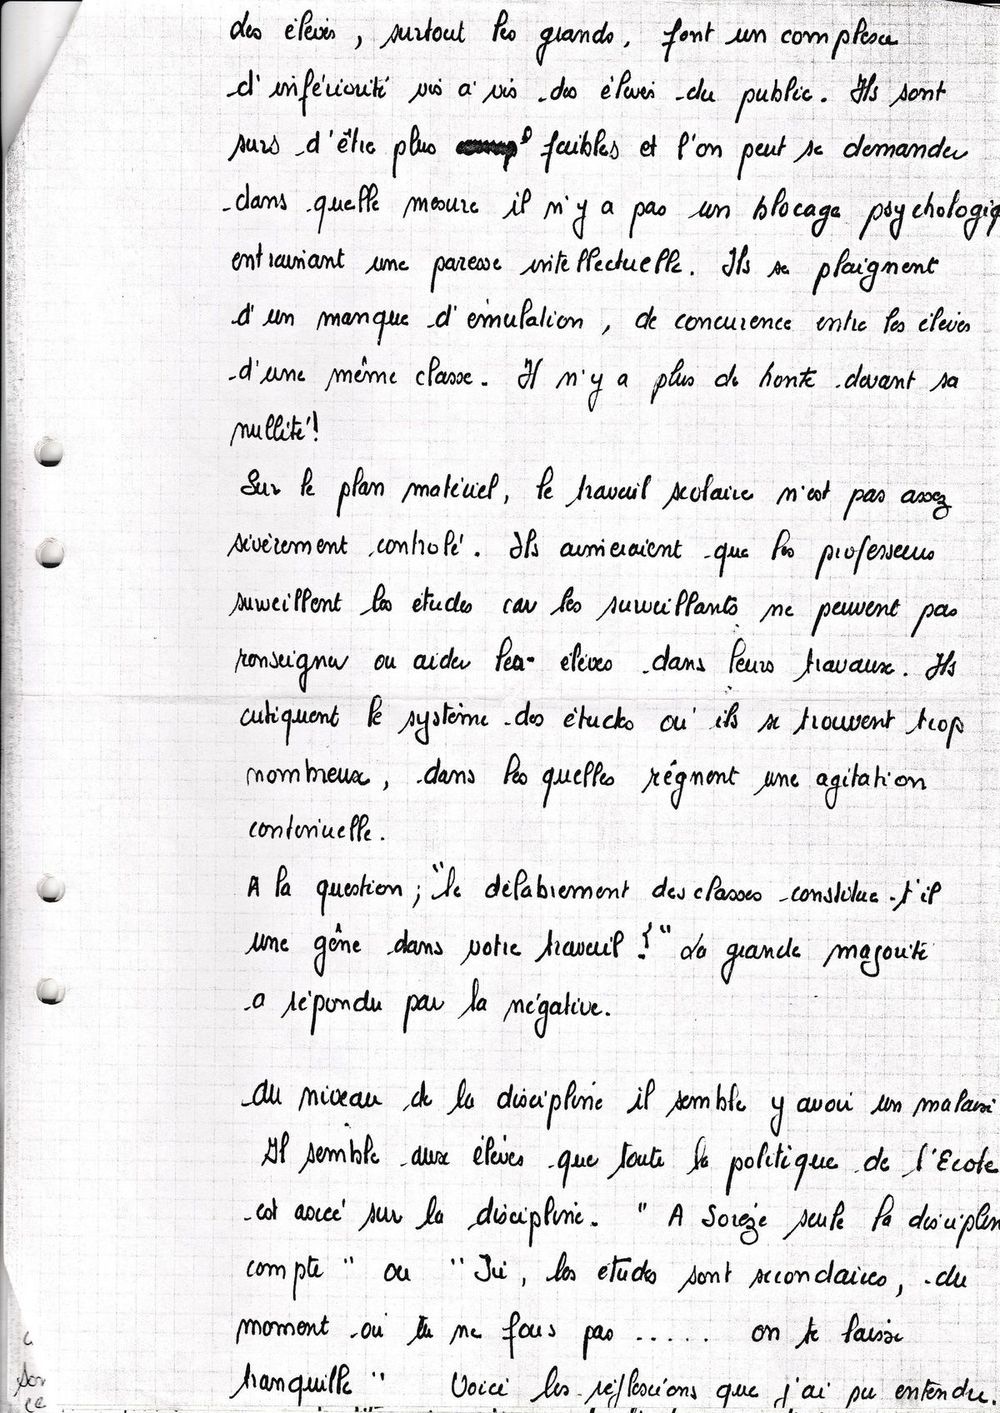 des élèves, surtout les grands, font un complexe
d'infériorité vis à vis des élèves du public. Ils sont
surs d'être plus faibles et l'on peut se demander
dans quelle mesure il n'y a pas un blocage psychologiq
entrainant une paresse intellectuelle. Ils se plaignent
d'un manque d'émulation, de concurence entre les élèves
d'une même classe. Il n'y a plus de honte devant sa
nullité!
Sur le plan matériel, le travail scolaire n'est pas assez
sévèrement controlé. Ils aimeraient que les professeurs
surveillent les études car les surveillants ne peuvent pas
renseigner ou aider les élèves dans leurs travaux. Ils
critiquent le système des études où ils se trouvent trop
nombreux, dans les quelles régnent une agitation
continuelle.
A la question; "le délabrement des classes constitue-t'il
une gêne dans votre travail?" La grande majorité
a répondu par la négative.
Au niveau de la discipline il semble y avoir un malaise
Il semble aux élèves que toute la politique de l'Ecole
est axée sur la discipline. "A Sorèze seule la disciplin
compte" ou "Ici, les études sont secondaires, du
moment où tu ne fous pas ..... on te laisse
tranquille" Voici les réflexions que j'ai pu entendre.